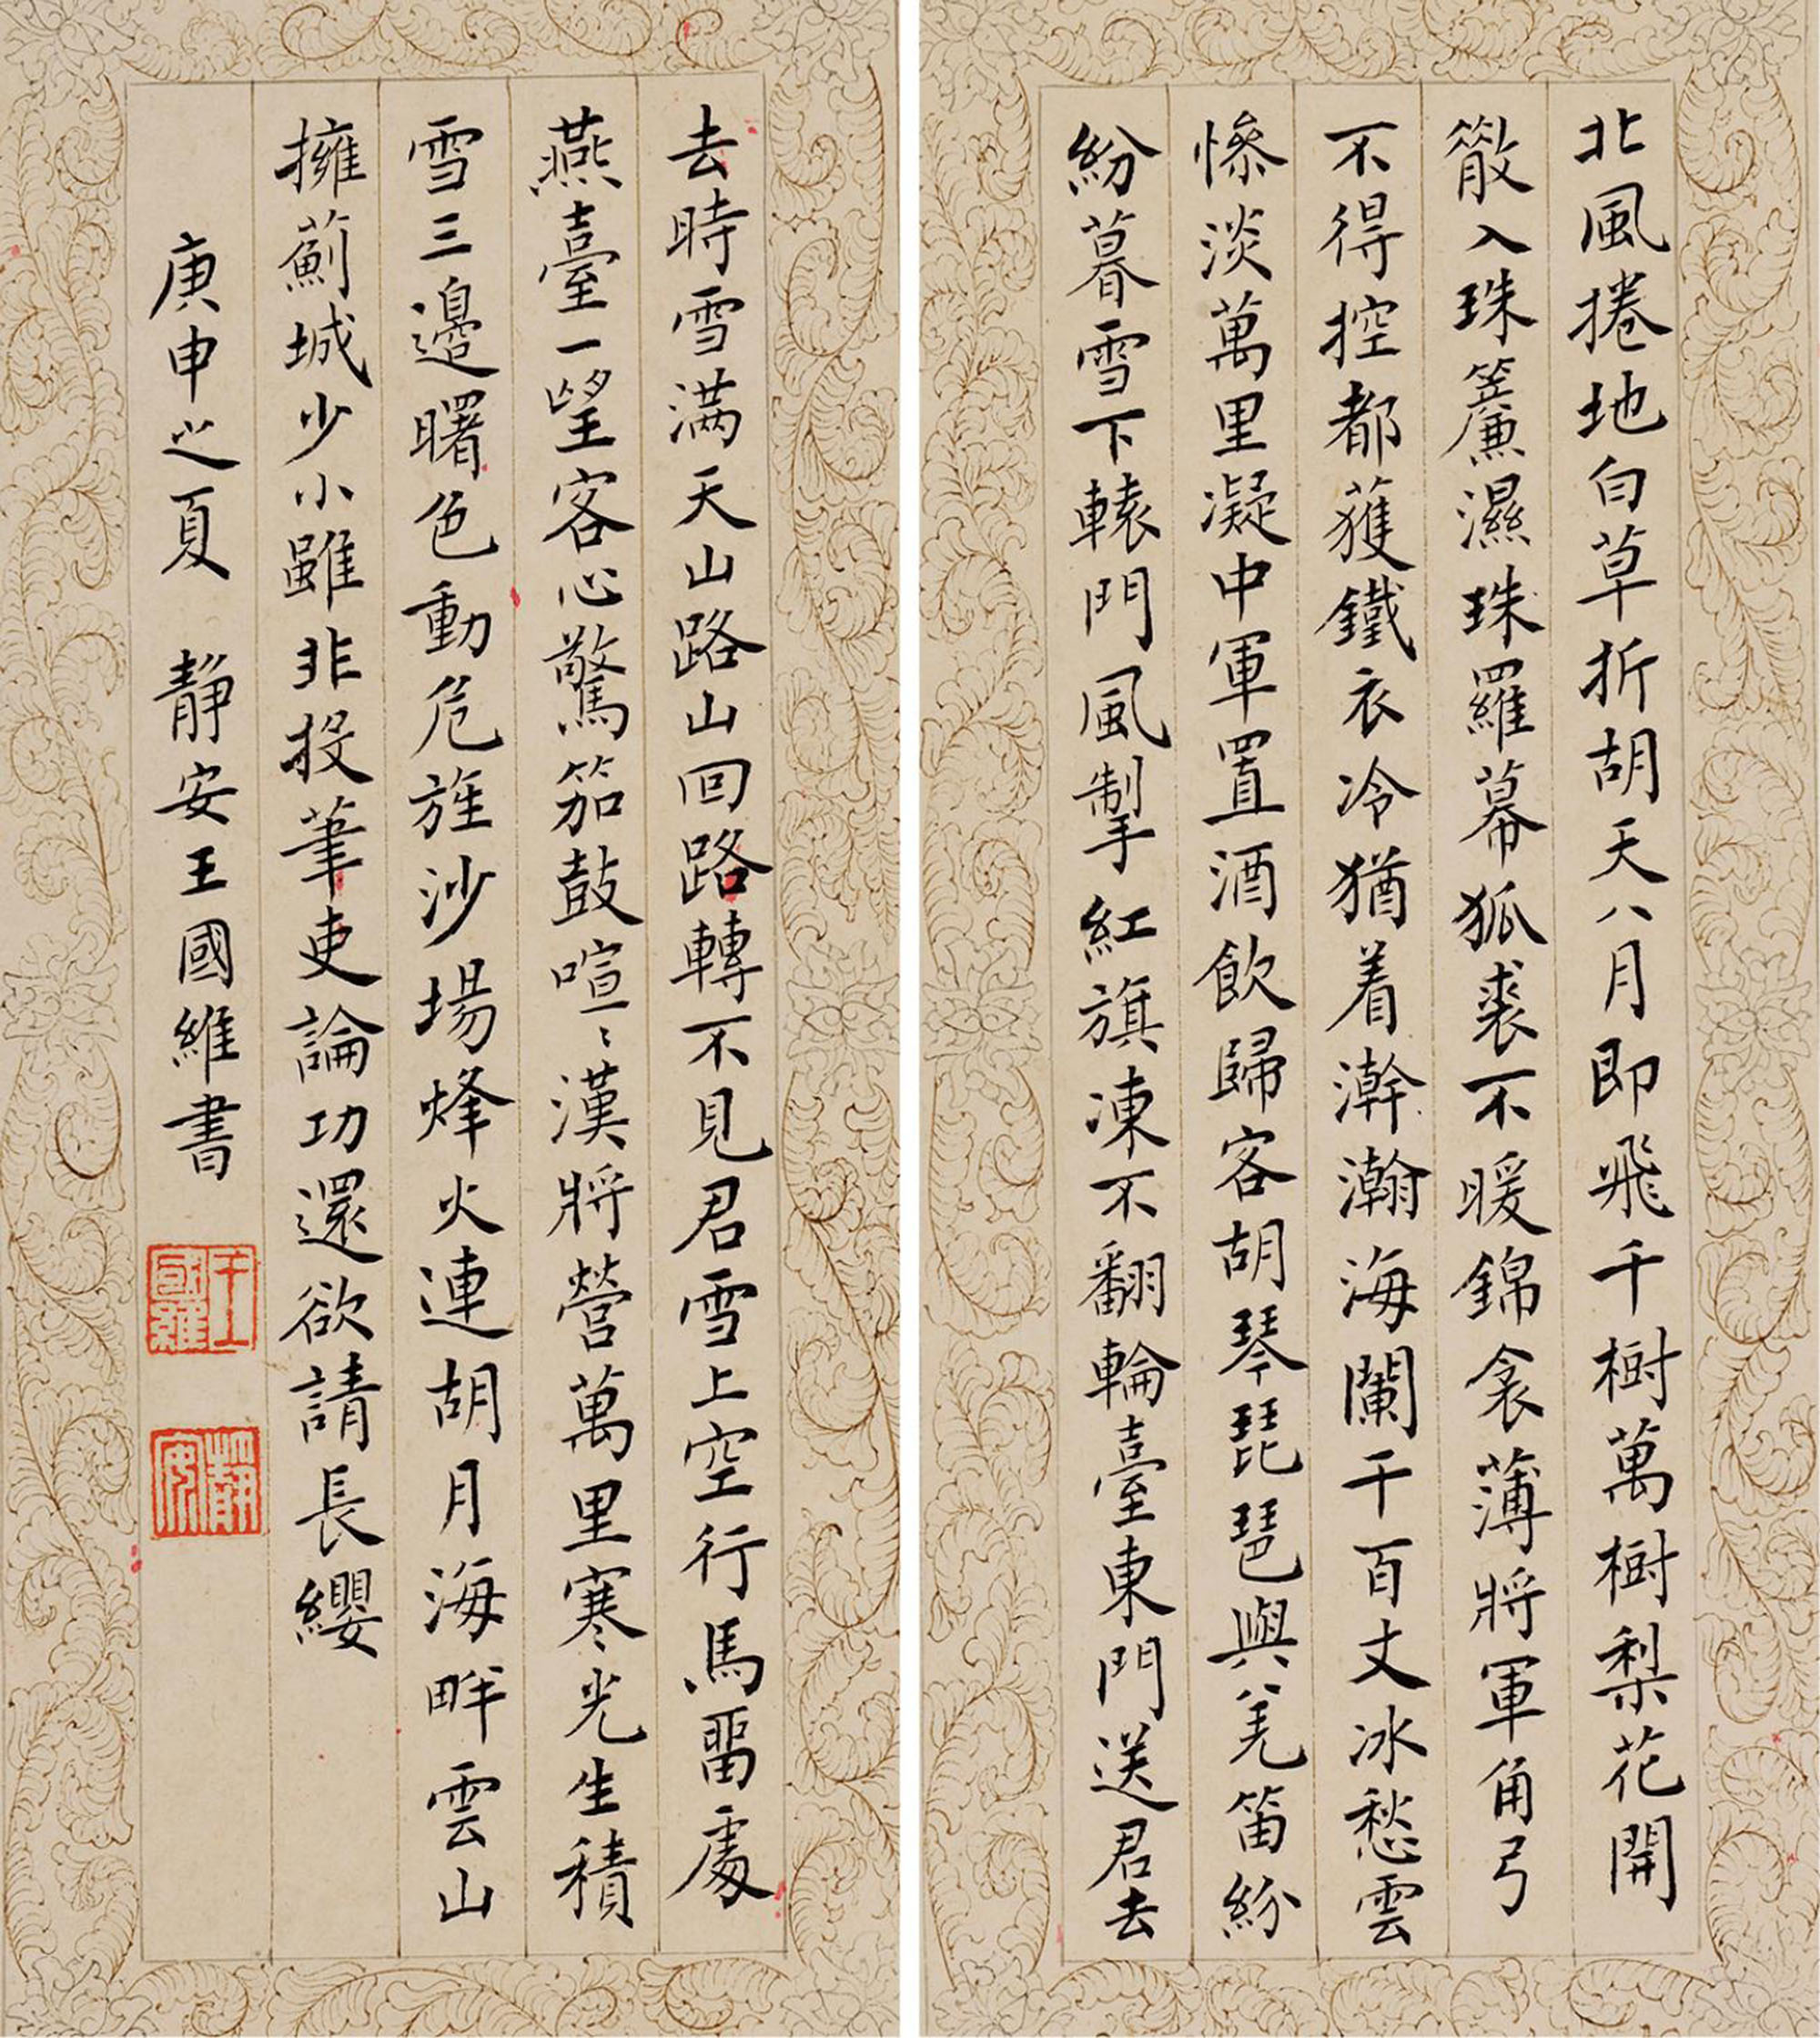 北風捲地白草折胡天八月即飛千樹萬樹梨花開
散入珠簾濕珠羅幕狐裘不暖錦衾薄將軍角弓
不得控都獲鐵衣冷猶着澣瀚海闌干百丈冰愁雲
慘淡萬里凝中軍置酒飲歸客胡琴琵琶與羌笛紛
紛暮雪下轅門風掣紅旗凍不翻輪臺東門送君去
去時雪滿天山路山回路轉不見君雪上空行馬畱處
燕臺一望客心驚笳鼓喧〻漢將營萬里寒光生積
雪三邊曙色動危旌沙場烽火連胡月海畔雲山
擁薊城少小雖非投筆吏論功還欲請長纓
庚申之夏 靜安王國維書
王國維
靜安